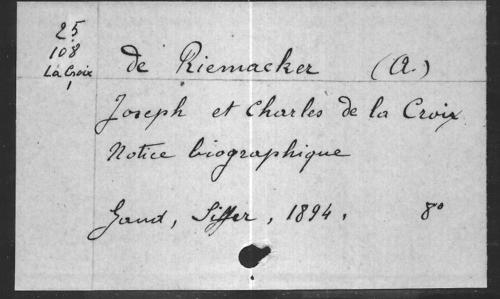 25
108
La Croix
1
de Riemacker (A.)
Joseph et Charles de la Croix
Notice biographique
Gand, Siffer, 1894. 8°